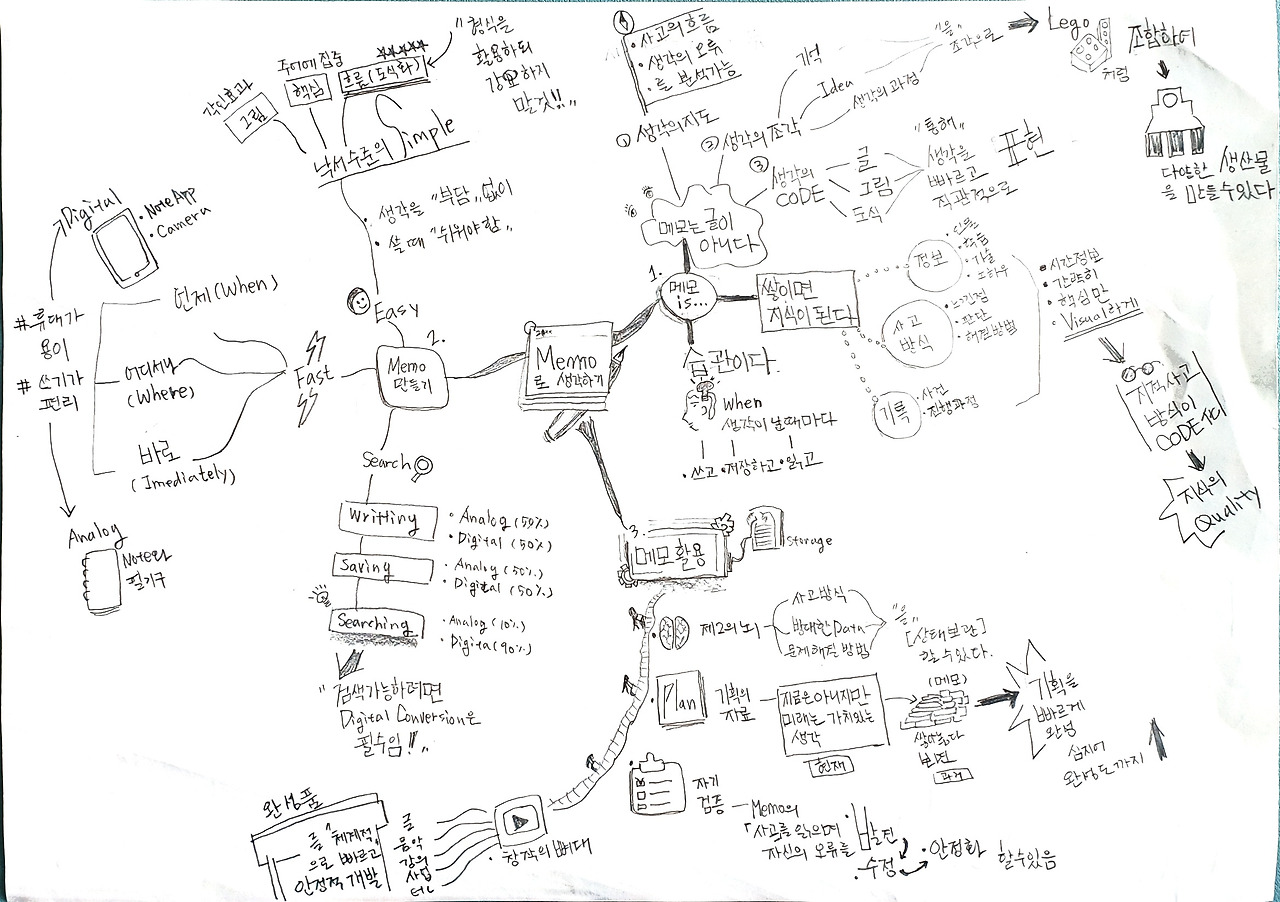 Memo
로 생각하기
1.
메모
is...
메모는 글이
아니다
① 생각의지도
• 사고의 흐름
• 생각의 오류
• 를 분석가능
② 생각의 조각
기억
Idea
생각의 과정
"을"
조각으로
Lego
처럼
조합하여
다양한 생산물
을 만들 수 있다
③ 생각의
CODE
글
그림
도식
"통해"
생각을
빠르고
직관적으로
표현
쌓이면
지식이 된다
정보
• 인물
• 기술
• 노하우
사고
방식
• 느낀점
• 판단
• 해결방법
기록
• 사건
• 진행과정
• 시간정보
• 간략히
• 핵심만
• Visual하게
지적사고
방식이
CODE화
지식의
Quality
습관이다.
When
생각이 날때마다
• 쓰고 • 저장하고 • 읽고
2.
Memo
만들기
Easy
• 생각을 "부담" 없이
• 쓸 때 "쉬워야 함"
낙서수준의 Simple
각인효과
그림
주어에 집중
핵심
★★★★★
흐름(도식화)
"형식을
활용하되
강요하지
말것!!"
Fast
언제(When)
어디서나
(Where)
바로
(Imediately)
# 휴대가
용이
# 쓰기가
편리
Digital
• Note App
• Camera
Analog
Note와
필기구
Search
Writting
• Analog (50%)
• Digital (50%)
Saving
• Analog (50%)
• Digital (50%)
Searching
• Analog (10%)
• Digital (90%)
"검색가능하려면
Digital Conversion은
필수임!!"
3.
메모 활용
Storage
제2의 뇌
사고방식
방대한 Data
문제해결 방법
"을"
[상태보관]
할 수 있다.
Plan
기획의
자료
지금은 아니지만
미래는 가치있는
생각
현재
(메모)
쌓아놓다
과거
기획을
빠르게
완성
심지어
완성도까지
자기
검증
Memo의
「사고를 읽으며
자신의 오류를
발견
• 수정
• 안정화 할 수 있음
• 창작의 뼈대
글
음악
강의
사업
etc
완성품
를 "체계적"
으로 빠르고
안정적 개발